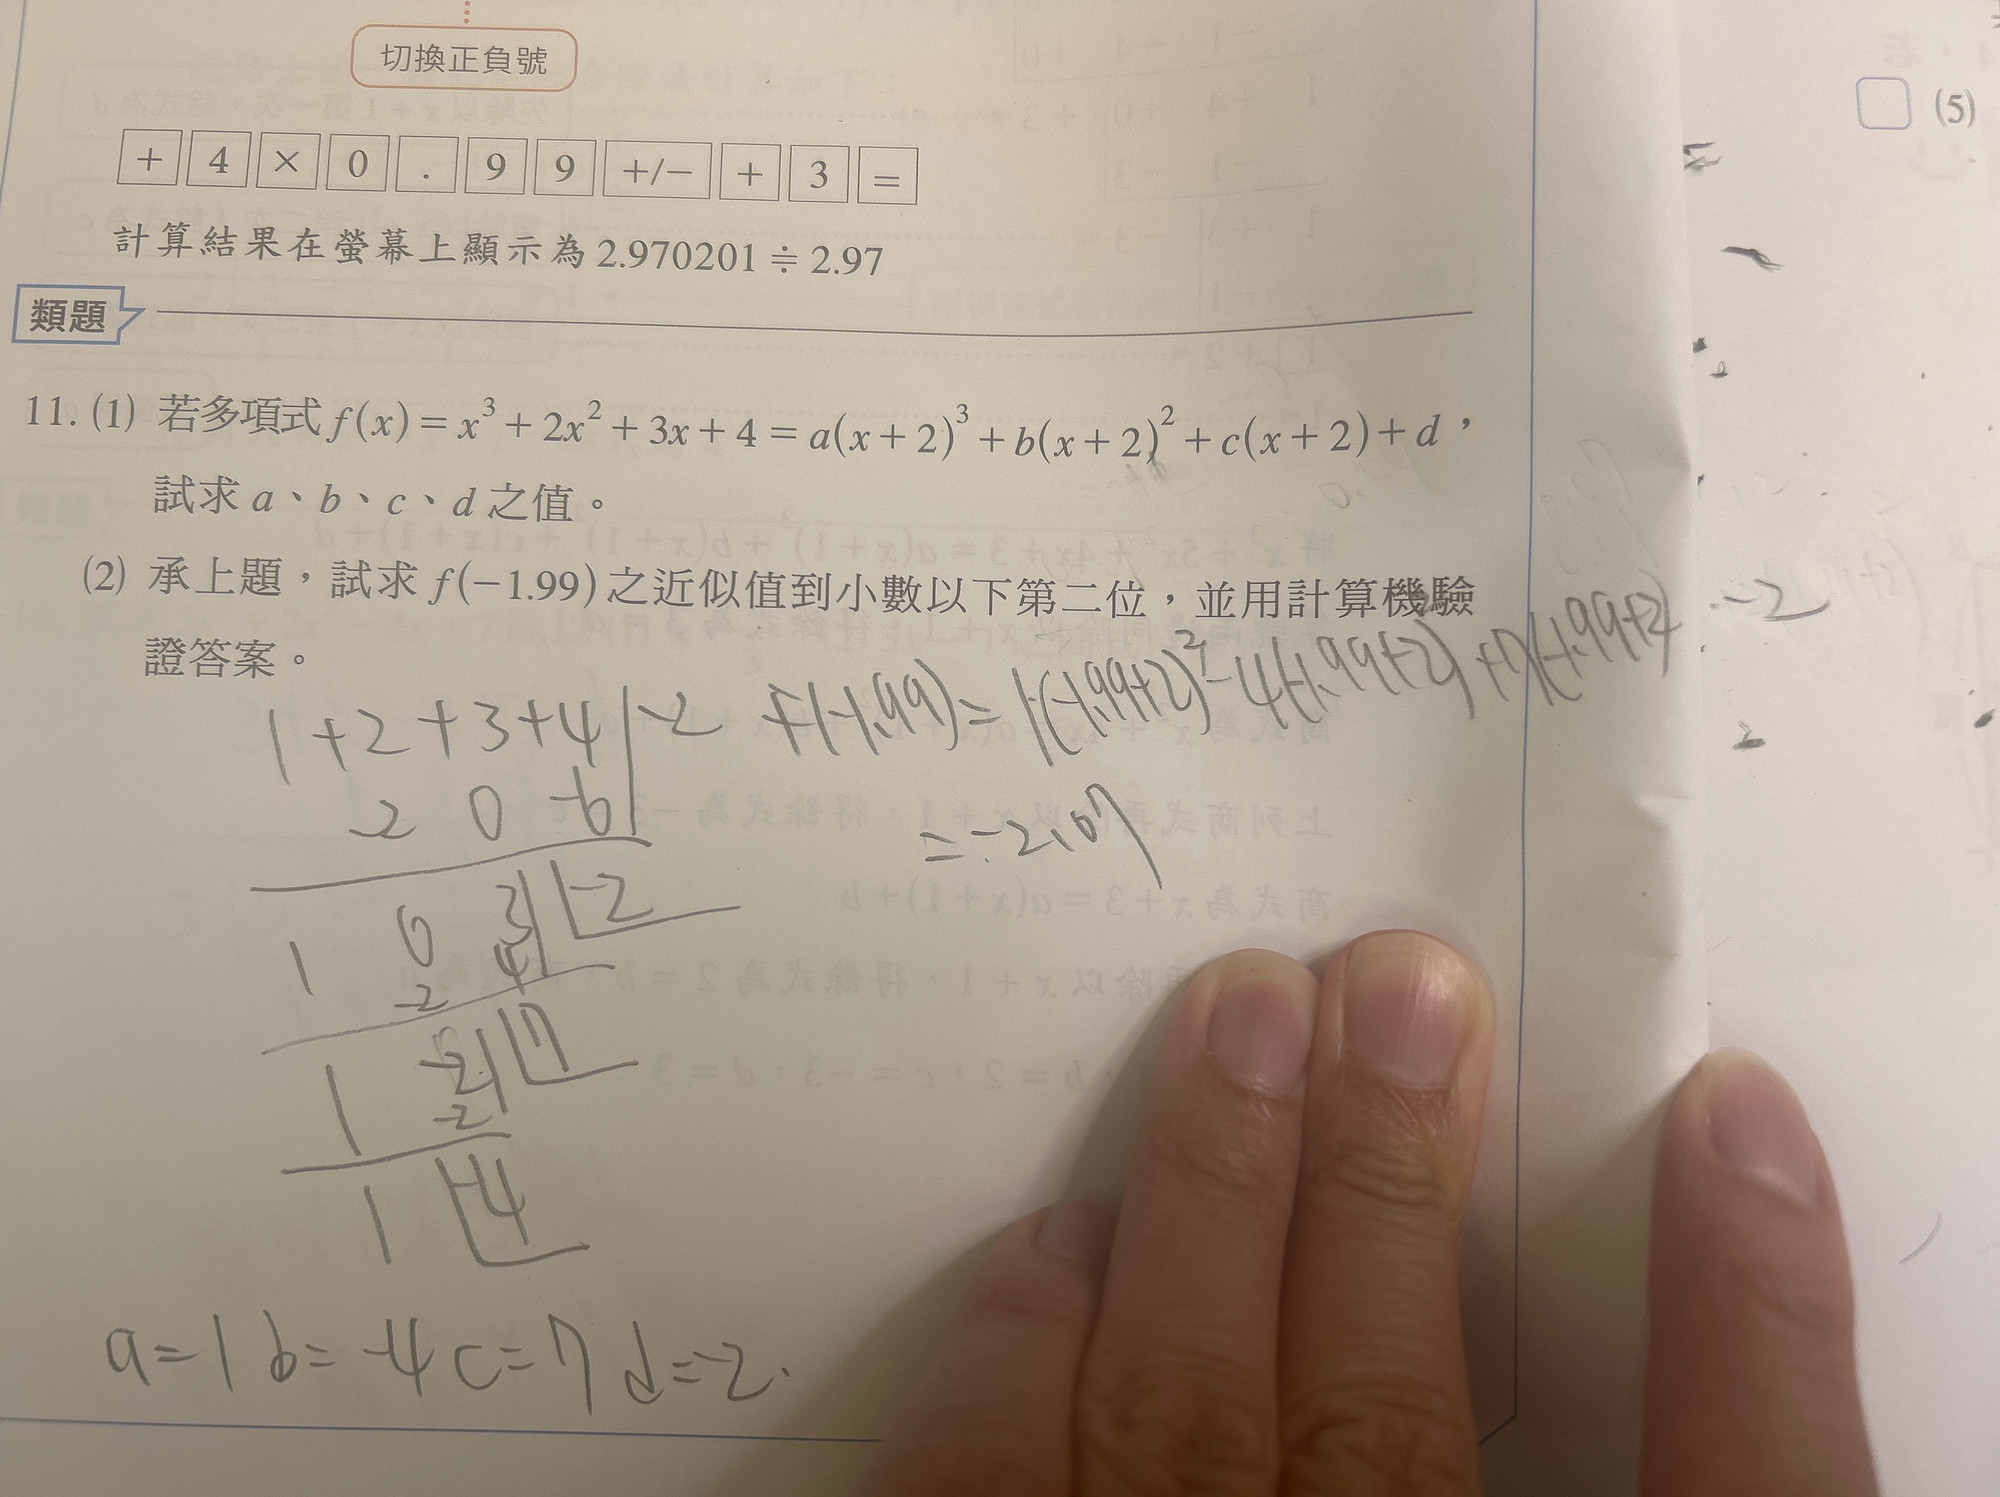 切換正負號
(5)
+ 4 × 0 . 9 9 +/− + 3 =
計算結果在螢幕上顯示為 2.970201 ≑ 2.97
類題
11. (1) 若多項式 f(x) = x³ + 2x² + 3x + 4 = a(x + 2)³ + b(x + 2)² + c(x + 2) + d，
試求 a、b、c、d 之值。
(2) 承上題，試求 f(−1.99) 之近似值到小數以下第二位，並用計算機驗
證答案。
1 + 2 + 3 + 4 | -2
-2 0 -6
1 0 3 | -2
-2 4
1 -2 | 7
-2
1 | -4
f(-1.99) = 1·(-1.99+2)² - 4(-1.99+2) + 7(-1.99+2) -2
= -2.07
a = 1 b = -4 c = 7 d = -2.